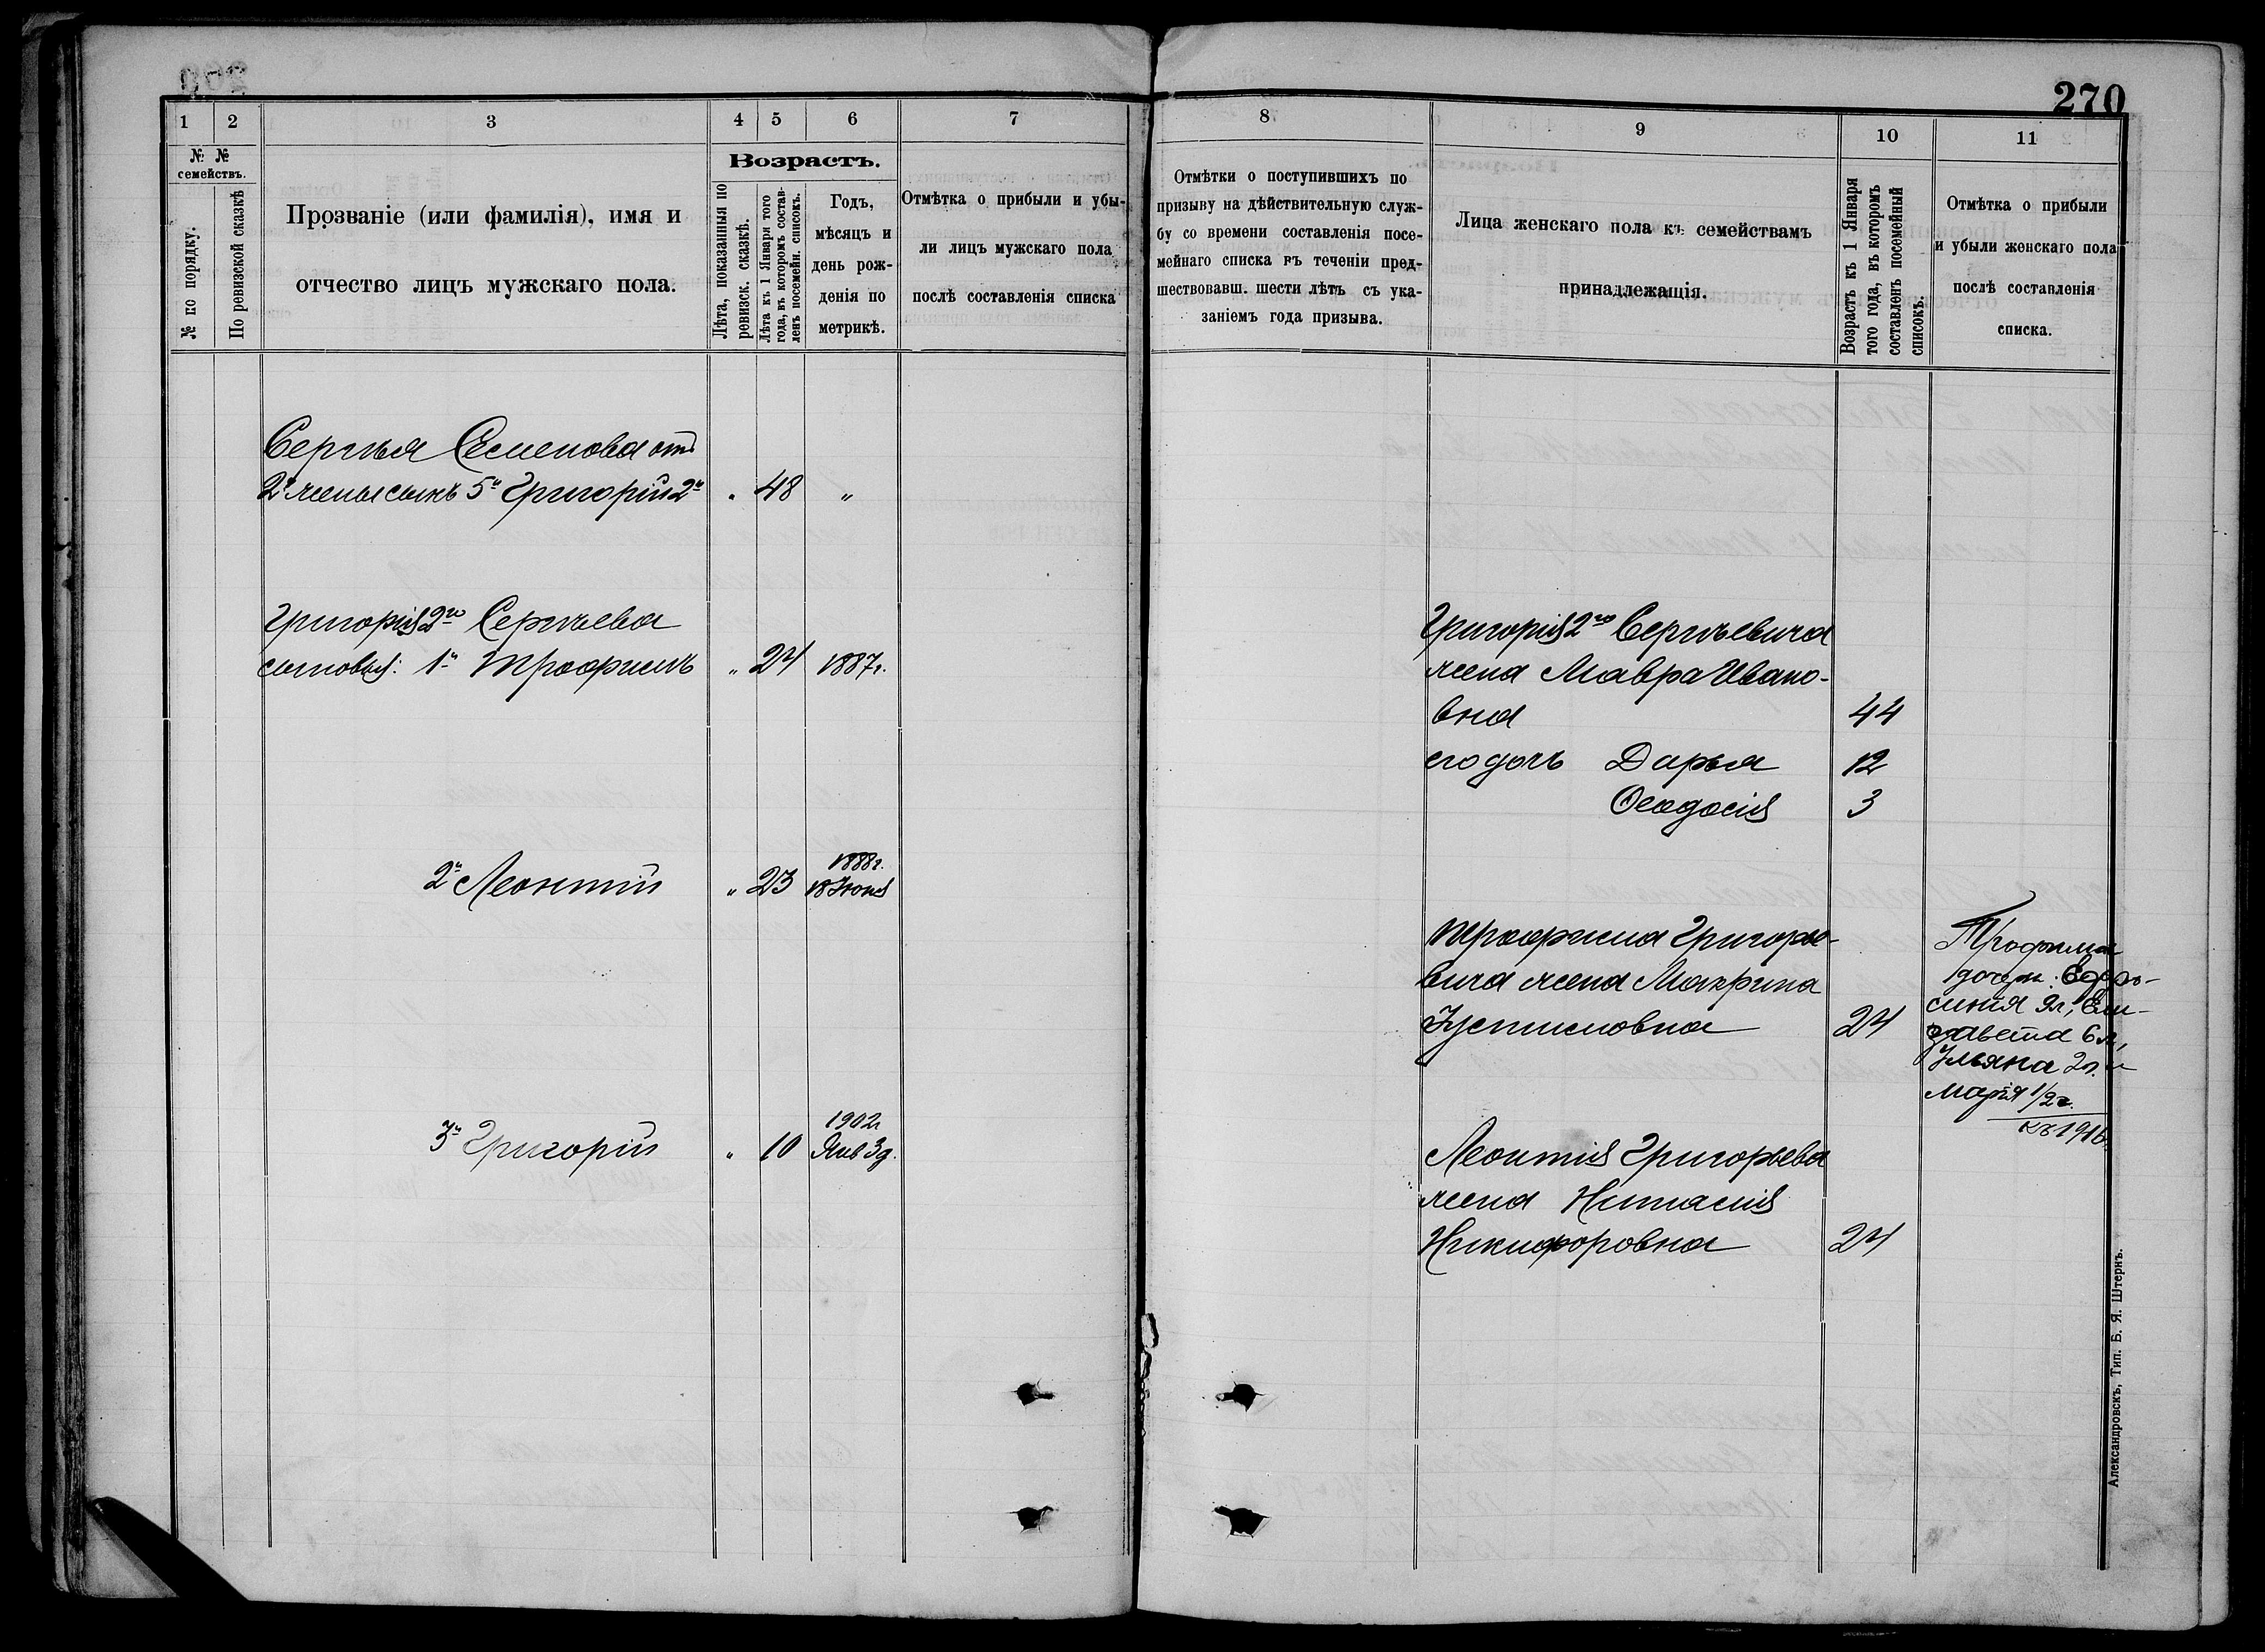 270
1 2 3 4 5 6 7
№ №
семействъ.
№ по порядку.
По ревизской сказкѣ
Прозваніе (или фамилія), имя и
отчество лицъ мужскаго пола.
Возрастъ.
Лѣта, показанныя по
ревизск. сказкѣ.
Лѣта къ 1 Января того
года, въ которомъ состав-
ленъ посемейн. списокъ.
Годъ,
мѣсяцъ и
день рож-
денія по
метрикѣ.
Отмѣтка о прибыли и убы-
ли лицъ мужскаго пола
послѣ составленія списка
Сергѣя Семенова отъ
2й жены сынъ 5й Григорій 2й „ 48 „
Григорія 2го Сергѣева
сыновья: 1й Трофимъ „ 24 1887г.
1888г.
2й Леонтій „ 23 18 Іюня
1902г
3й Григорій „ 10 Янв 3д.
8 9 10 11
Отмѣтки о поступившихъ по
призыву на дѣйствительную служ-
бу со времени составленія посе-
мейнаго списка въ теченіи пред-
шествовавш. шести лѣтъ съ ука-
заніемъ года призыва.
Лица женскаго пола къ семействамъ
принадлежащія.
Возрастъ къ 1 Января
того года, въ которомъ
составленъ посемейный
списокъ.
Отмѣтка о прибыли
и убыли женскаго пола
послѣ составленія
списка.
Григорія 2го Сергѣевича
жена Мавра Ивано-
вна 44
его дочь Дарья 12
Ѳеодосія 3
Трофима Григорье-
вича жена Макрина
Устимовна 24
Трофима
дочери: Ефро-
синія 9л, Ели-
завета 6л,
Ульяна 2г. и
Марія 1/2г.
къ 1916
Леонтія Григорьева
жена
Никифоровна 24
Александровскъ, Тип. Б. Я. Штернъ.